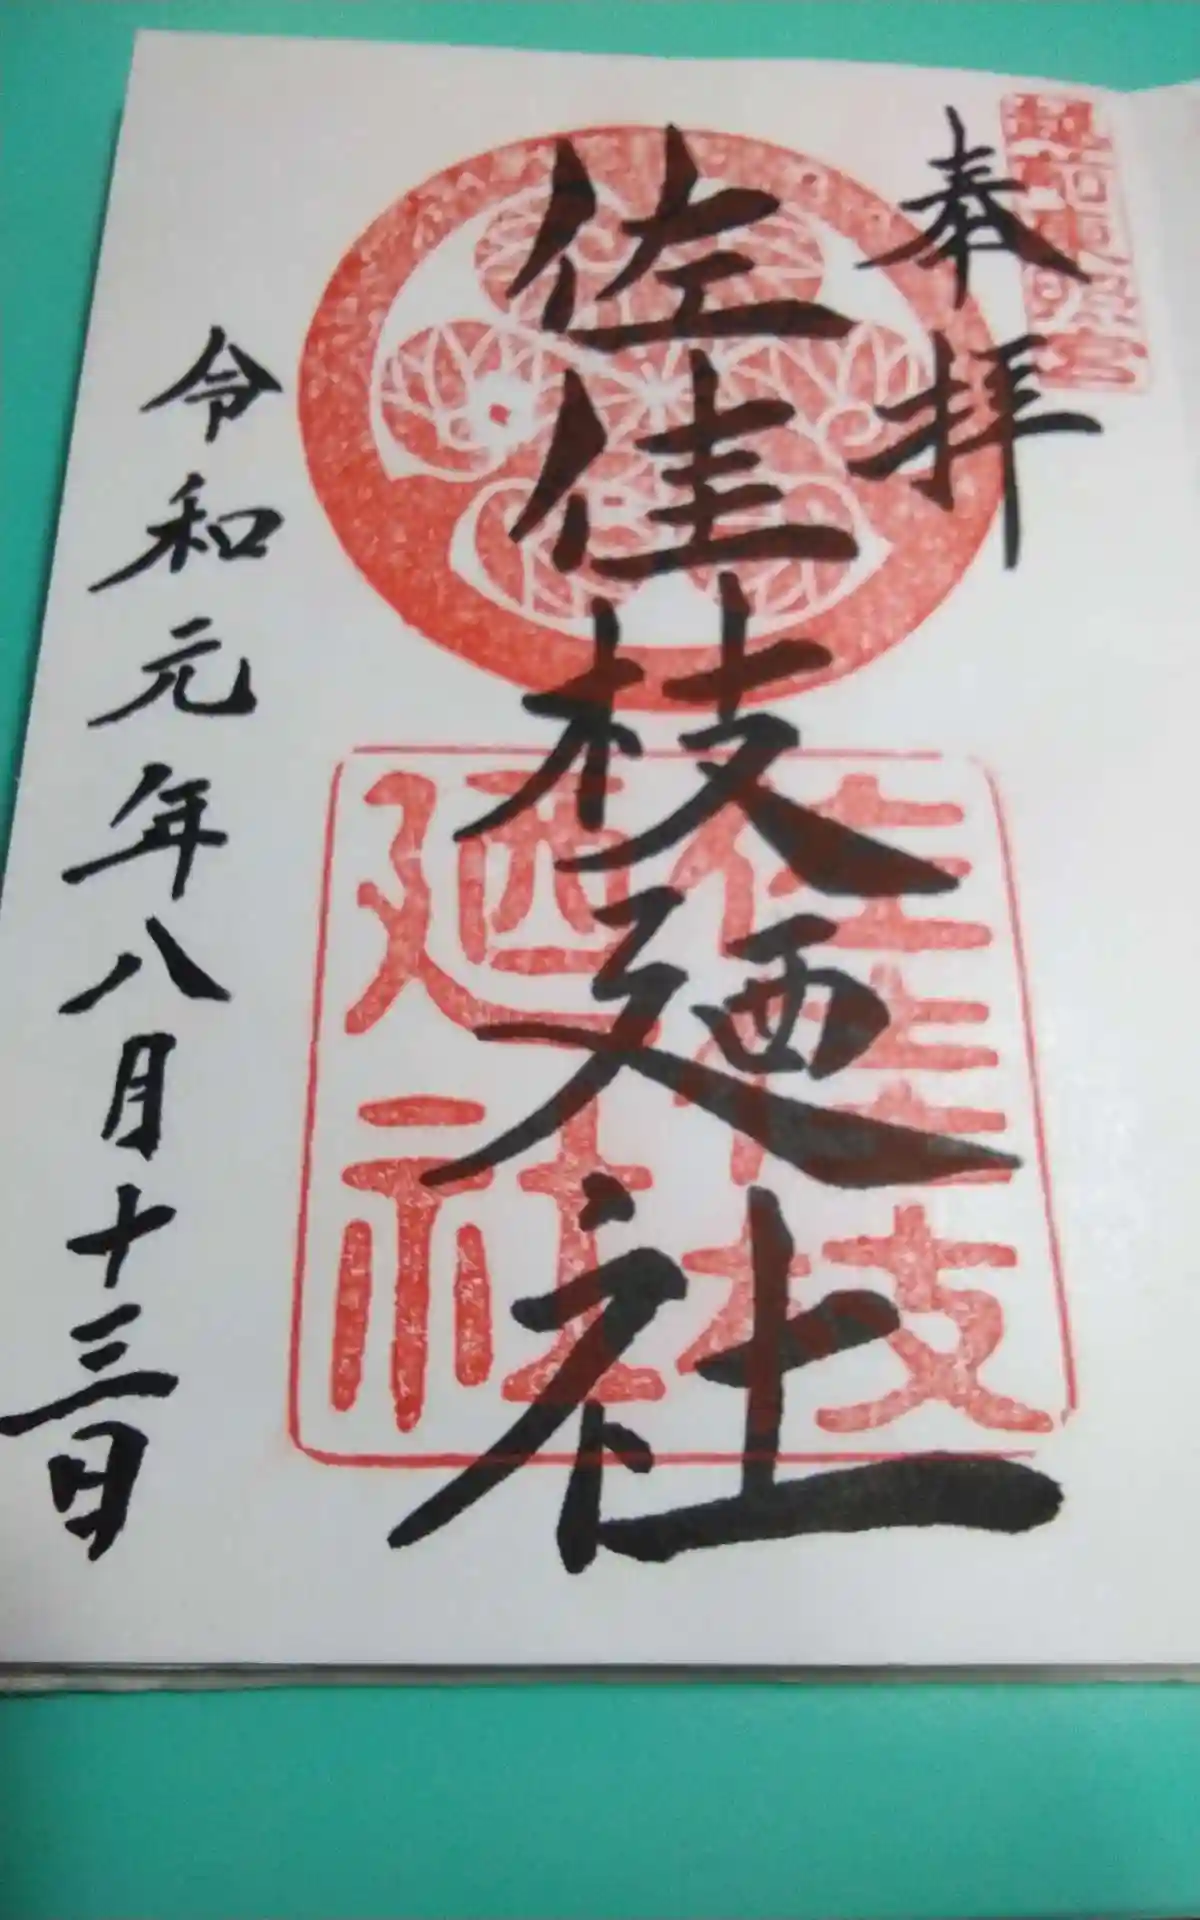 奉拝
佐佳枝廼社
佐佳枝
廼社
令和元年八月十三日